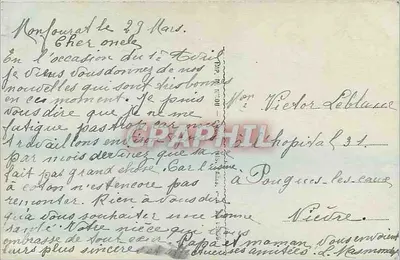 Monfourat le 23 Mars.
Cher oncle
En l'occasion du 1er Avril
je viens vous donnez de nos
nouvelles qui sont très bonnes
en ces moment. Je puis
vous dire que je ne me
fatigue pas trop
travaillons
par mois que sa ne
fait pas grand chose. Car l'usine
à coton n'est encore pas
remonter. Rien à vous dire
qu'a vous souhaiter une bonne
santé. Votre nièce qui vous
embrasse de tout cœur. Papa et maman vous envoient
leurs plus sincères amitiées. L.
Mon Victor Leblanc
hopital 31
à Pougues-les-eaux
Nièvre.
CPAPHIL